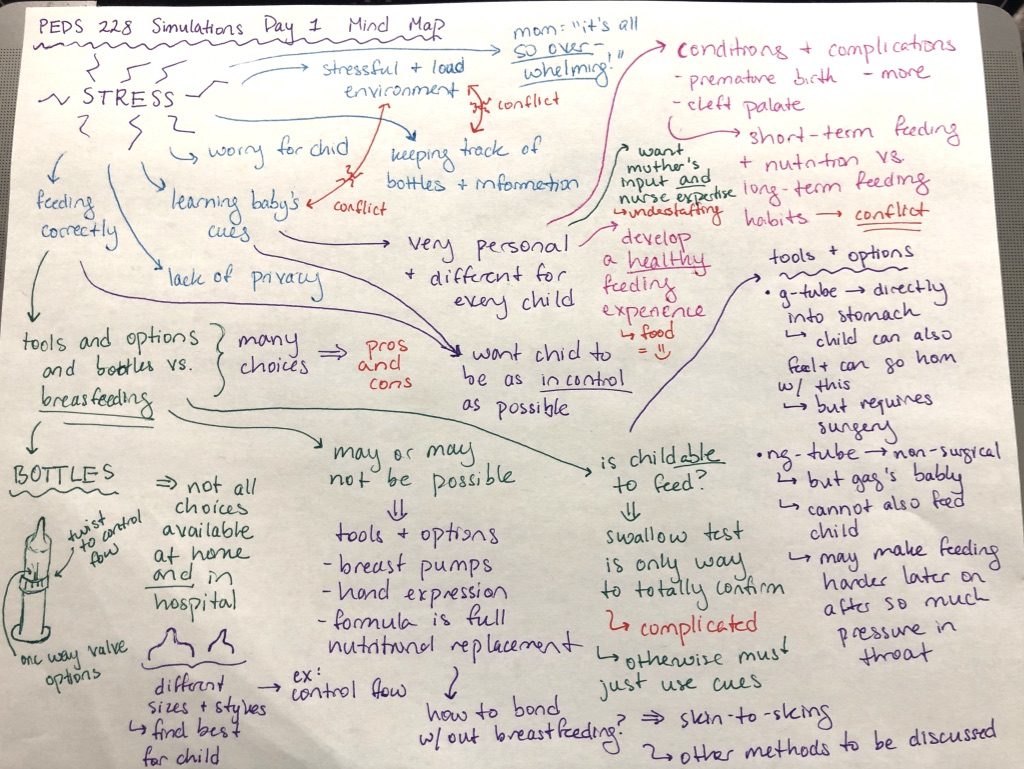 PEDS 228 Simulations Day 1 Mind Map
STRESS
stressful + loud
environment
mom: "it's all
so over-
whelming!"
conflict
worry for chid
keeping track of
bottles + information
learning baby's
cues
conflict
feeding
correctly
lack of privacy
very personal
+ different for
every child
conditions + complications
- premature birth
- more
- cleft palate
short-term feeding
+ nutrition vs.
long-term feeding
habits → conflict
want
mother's
input and
nurse expertise
↳ understaffing
develop
a healthy
feeding
experience
↳ food
= :)
tools and options
and bottles vs.
breasfeeding
many
choices
⇒ pros
and
cons
want chid to
be as in control
as possible
tools + options
• g-tube → directly
into stomach
↳ child can also
feel + can go hom
w/ this
↳ but requires
surgery
• ng-tube → non-surgical
↳ but gag's bably
↳ cannot also feed
child
↳ may make feeding
harder later on
after so much
pressure in
throat
BOTTLES
twist
to control
flow
one way valve
options
⇒ not all
choices
available
at home
and in
hospital
different
sizes + styles
↳ find best
for child
→ ex:
control flow
may or may
not be possible
⇓
tools + options
- breast pumps
- hand expression
- formula is full
nutritional replacement
how to bond
w/out breastfeeding?
⇒ skin-to-sking
↳ other methods to be discussed
is child able
to feed?
⇓
swallow test
is only way
to totally confirm
↳ complicated
↳ otherwise must
just use cues